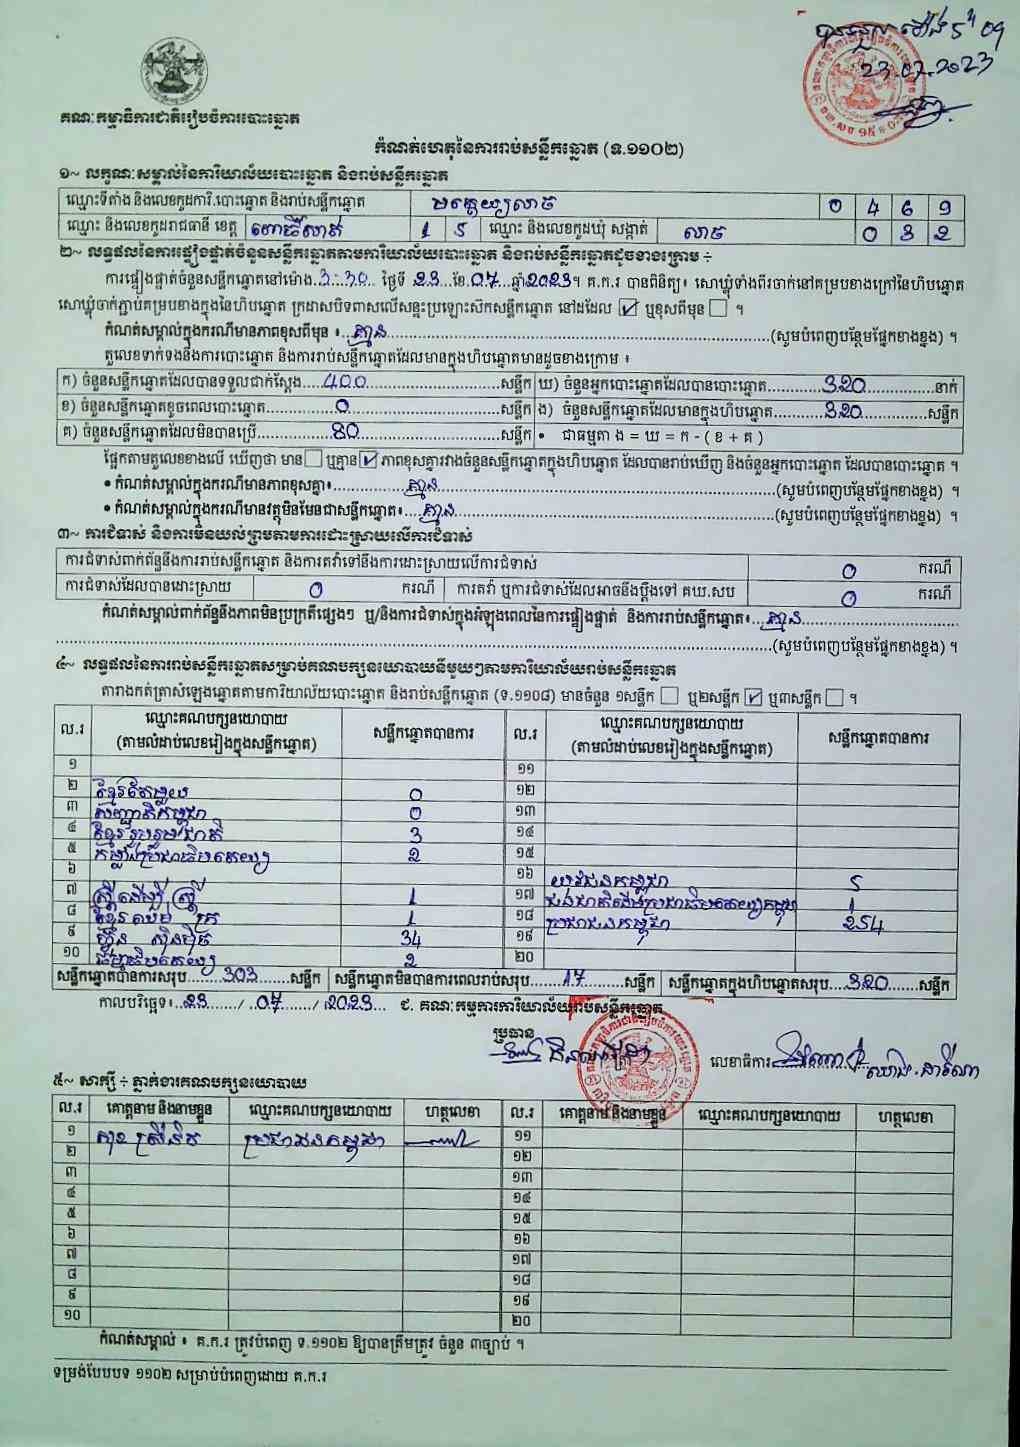 23.07.2023
គណៈកម្មាធិការជាតិរៀបចំការបោះឆ្នោត
កំណត់ហេតុនៃការរាប់សន្លឹកឆ្នោត (ទ.១១០២)
១~ លក្ខណៈសម្គាល់នៃការិយាល័យបោះឆ្នោត និងរាប់សន្លឹកឆ្នោត
ឈ្មោះទីតាំង និងលេខកូដការិ.បោះឆ្នោត និងរាប់សន្លឹកឆ្នោត មត្តេយ្យលាច 0 4 6 9
ឈ្មោះ និងលេខកូដរាជធានី ខេត្ត ពោធិ៍សាត់ 1 5 ឈ្មោះ និងលេខកូដឃុំ សង្កាត់ លាច 0 3 2
២~ លទ្ធផលនៃការផ្ទៀងផ្ទាត់ចំនួនសន្លឹកឆ្នោតតាមការិយាល័យបោះឆ្នោត និងរាប់សន្លឹកឆ្នោតដូចខាងក្រោម ÷
ការផ្ទៀងផ្ទាត់ចំនួនសន្លឹកឆ្នោតនៅម៉ោង 3:30 ថ្ងៃទី 23 ខែ 07 ឆ្នាំ 2023។ គ.ក.រ បានពិនិត្យ៖ សោឃ្លុំទាំងពីរចាក់នៅគម្របខាងក្រៅនៃហិបឆ្នោត
សោឃ្លុំចាក់ភ្ជាប់គម្របខាងក្នុងនៃហិបឆ្នោត ក្រដាសបិទពាសលើសន្ទះប្រឡោះស៊កសន្លឹកឆ្នោត នៅដដែល ☑ ឬខុសពីមុន ☐ ។
កំណត់សម្គាល់ក្នុងករណីមានភាពខុសពីមុន ៖ គ្មាន (សូមបំពេញបន្ថែមផ្នែកខាងខ្នង) ។
តួលេខទាក់ទងនឹងការបោះឆ្នោត និងការរាប់សន្លឹកឆ្នោតដែលមានក្នុងហិបឆ្នោតមានដូចខាងក្រោម ៖
ក) ចំនួនសន្លឹកឆ្នោតដែលបានទទួលជាក់ស្តែង 400 សន្លឹក ឃ) ចំនួនអ្នកបោះឆ្នោតដែលបានបោះឆ្នោត 320 នាក់
ខ) ចំនួនសន្លឹកឆ្នោតខូចពេលបោះឆ្នោត 0 សន្លឹក ង) ចំនួនសន្លឹកឆ្នោតដែលមានក្នុងហិបឆ្នោត 320 សន្លឹក
គ) ចំនួនសន្លឹកឆ្នោតដែលមិនបានប្រើ 80 សន្លឹក • ជាធម្មតា ង = ឃ = ក - ( ខ + គ )
ផ្អែកតាមតួលេខខាងលើ ឃើញថា មាន ☐ ឬគ្មាន ☑ ភាពខុសគ្នារវាងចំនួនសន្លឹកឆ្នោតក្នុងហិបឆ្នោត ដែលបានរាប់ឃើញ និងចំនួនអ្នកបោះឆ្នោត ដែលបានបោះឆ្នោត ។
• កំណត់សម្គាល់ក្នុងករណីមានភាពខុសគ្នា៖ គ្មាន (សូមបំពេញបន្ថែមផ្នែកខាងខ្នង) ។
• កំណត់សម្គាល់ក្នុងករណីមានវត្ថុមិនមែនជាសន្លឹកឆ្នោត៖ គ្មាន (សូមបំពេញបន្ថែមផ្នែកខាងខ្នង) ។
៣~ ការជំទាស់ និងការមិនយល់ព្រមតាមការដោះស្រាយលើការជំទាស់
ការជំទាស់ពាក់ព័ន្ធនឹងការរាប់សន្លឹកឆ្នោត និងការតវ៉ាទៅនឹងការដោះស្រាយលើការជំទាស់ 0 ករណី
ការជំទាស់ដែលបានដោះស្រាយ 0 ករណី ការតវ៉ា ឬការជំទាស់ដែលអាចនឹងប្តឹងទៅ គឃ.សប 0 ករណី
កំណត់សម្គាល់ពាក់ព័ន្ធនឹងភាពមិនប្រក្រតីផ្សេងៗ ឬ/និងការជំទាស់ក្នុងអំឡុងពេលនៃការផ្ទៀងផ្ទាត់ និងការរាប់សន្លឹកឆ្នោត៖ គ្មាន
(សូមបំពេញបន្ថែមផ្នែកខាងខ្នង) ។
៤~ លទ្ធផលនៃការរាប់សន្លឹកឆ្នោតសម្រាប់គណបក្សនយោបាយនីមួយៗតាមការិយាល័យរាប់សន្លឹកឆ្នោត
តារាងកត់ត្រាសំឡេងឆ្នោតតាមការិយាល័យបោះឆ្នោត និងរាប់សន្លឹកឆ្នោត (ទ.១១០៨) មានចំនួន ១សន្លឹក ☐ ឬ២សន្លឹក ☑ ឬ៣សន្លឹក ☐ ។
ល.រ ឈ្មោះគណបក្សនយោបាយ (តាមលំដាប់លេខរៀងក្នុងសន្លឹកឆ្នោត) សន្លឹកឆ្នោតបានការ ល.រ ឈ្មោះគណបក្សនយោបាយ (តាមលំដាប់លេខរៀងក្នុងសន្លឹកឆ្នោត) សន្លឹកឆ្នោតបានការ
១ ១១
២ ខ្មែរតែមួយ 0 ១២
៣ សញ្ជាតិកម្ពុជា 0 ១៣
៤ ខ្មែររួបរួមជាតិ 3 ១៤
៥ កម្លាំងប្រជាធិបតេយ្យ 2 ១៥
៦ ១៦ យុវជនកម្ពុជា 5
៧ ស្ត្រីដើម្បីស្ត្រី 1 ១៧ ជនជាតិដើមប្រជាធិបតេយ្យកម្ពុជា 1
៨ ខ្មែរឈប់ក្រ 1 ១៨ ប្រជាជនកម្ពុជា 254
៩ ហ្វ៊ុនស៊ិនប៉ិច 34 ១៩
១០ ធម្មាធិបតេយ្យ 2 ២០
សន្លឹកឆ្នោតបានការសរុប 303 សន្លឹក សន្លឹកឆ្នោតមិនបានការពេលរាប់សរុប 17 សន្លឹក សន្លឹកឆ្នោតក្នុងហិបឆ្នោតសរុប 320 សន្លឹក
កាលបរិច្ឆេទ៖ 23 / 07 / 2023 ជ. គណៈកម្មការការិយាល័យរាប់សន្លឹកឆ្នោត
ប្រធាន
លេខាធិការ
៥~ សាក្សី ÷ ភ្នាក់ងារគណបក្សនយោបាយ
ល.រ គោត្តនាម និងនាមខ្លួន ឈ្មោះគណបក្សនយោបាយ ហត្ថលេខា ល.រ គោត្តនាម និងនាមខ្លួន ឈ្មោះគណបក្សនយោបាយ ហត្ថលេខា
១ ប្រជាជនកម្ពុជា ១១
២ ១២
៣ ១៣
៤ ១៤
៥ ១៥
៦ ១៦
៧ ១៧
៨ ១៨
៩ ១៩
១០ ២០
កំណត់សម្គាល់ ៖ គ.ក.រ ត្រូវបំពេញ ទ.១១០២ ឱ្យបានត្រឹមត្រូវ ចំនួន ៣ច្បាប់ ។
ទម្រង់បែបបទ ១១០២ សម្រាប់បំពេញដោយ គ.ក.រ